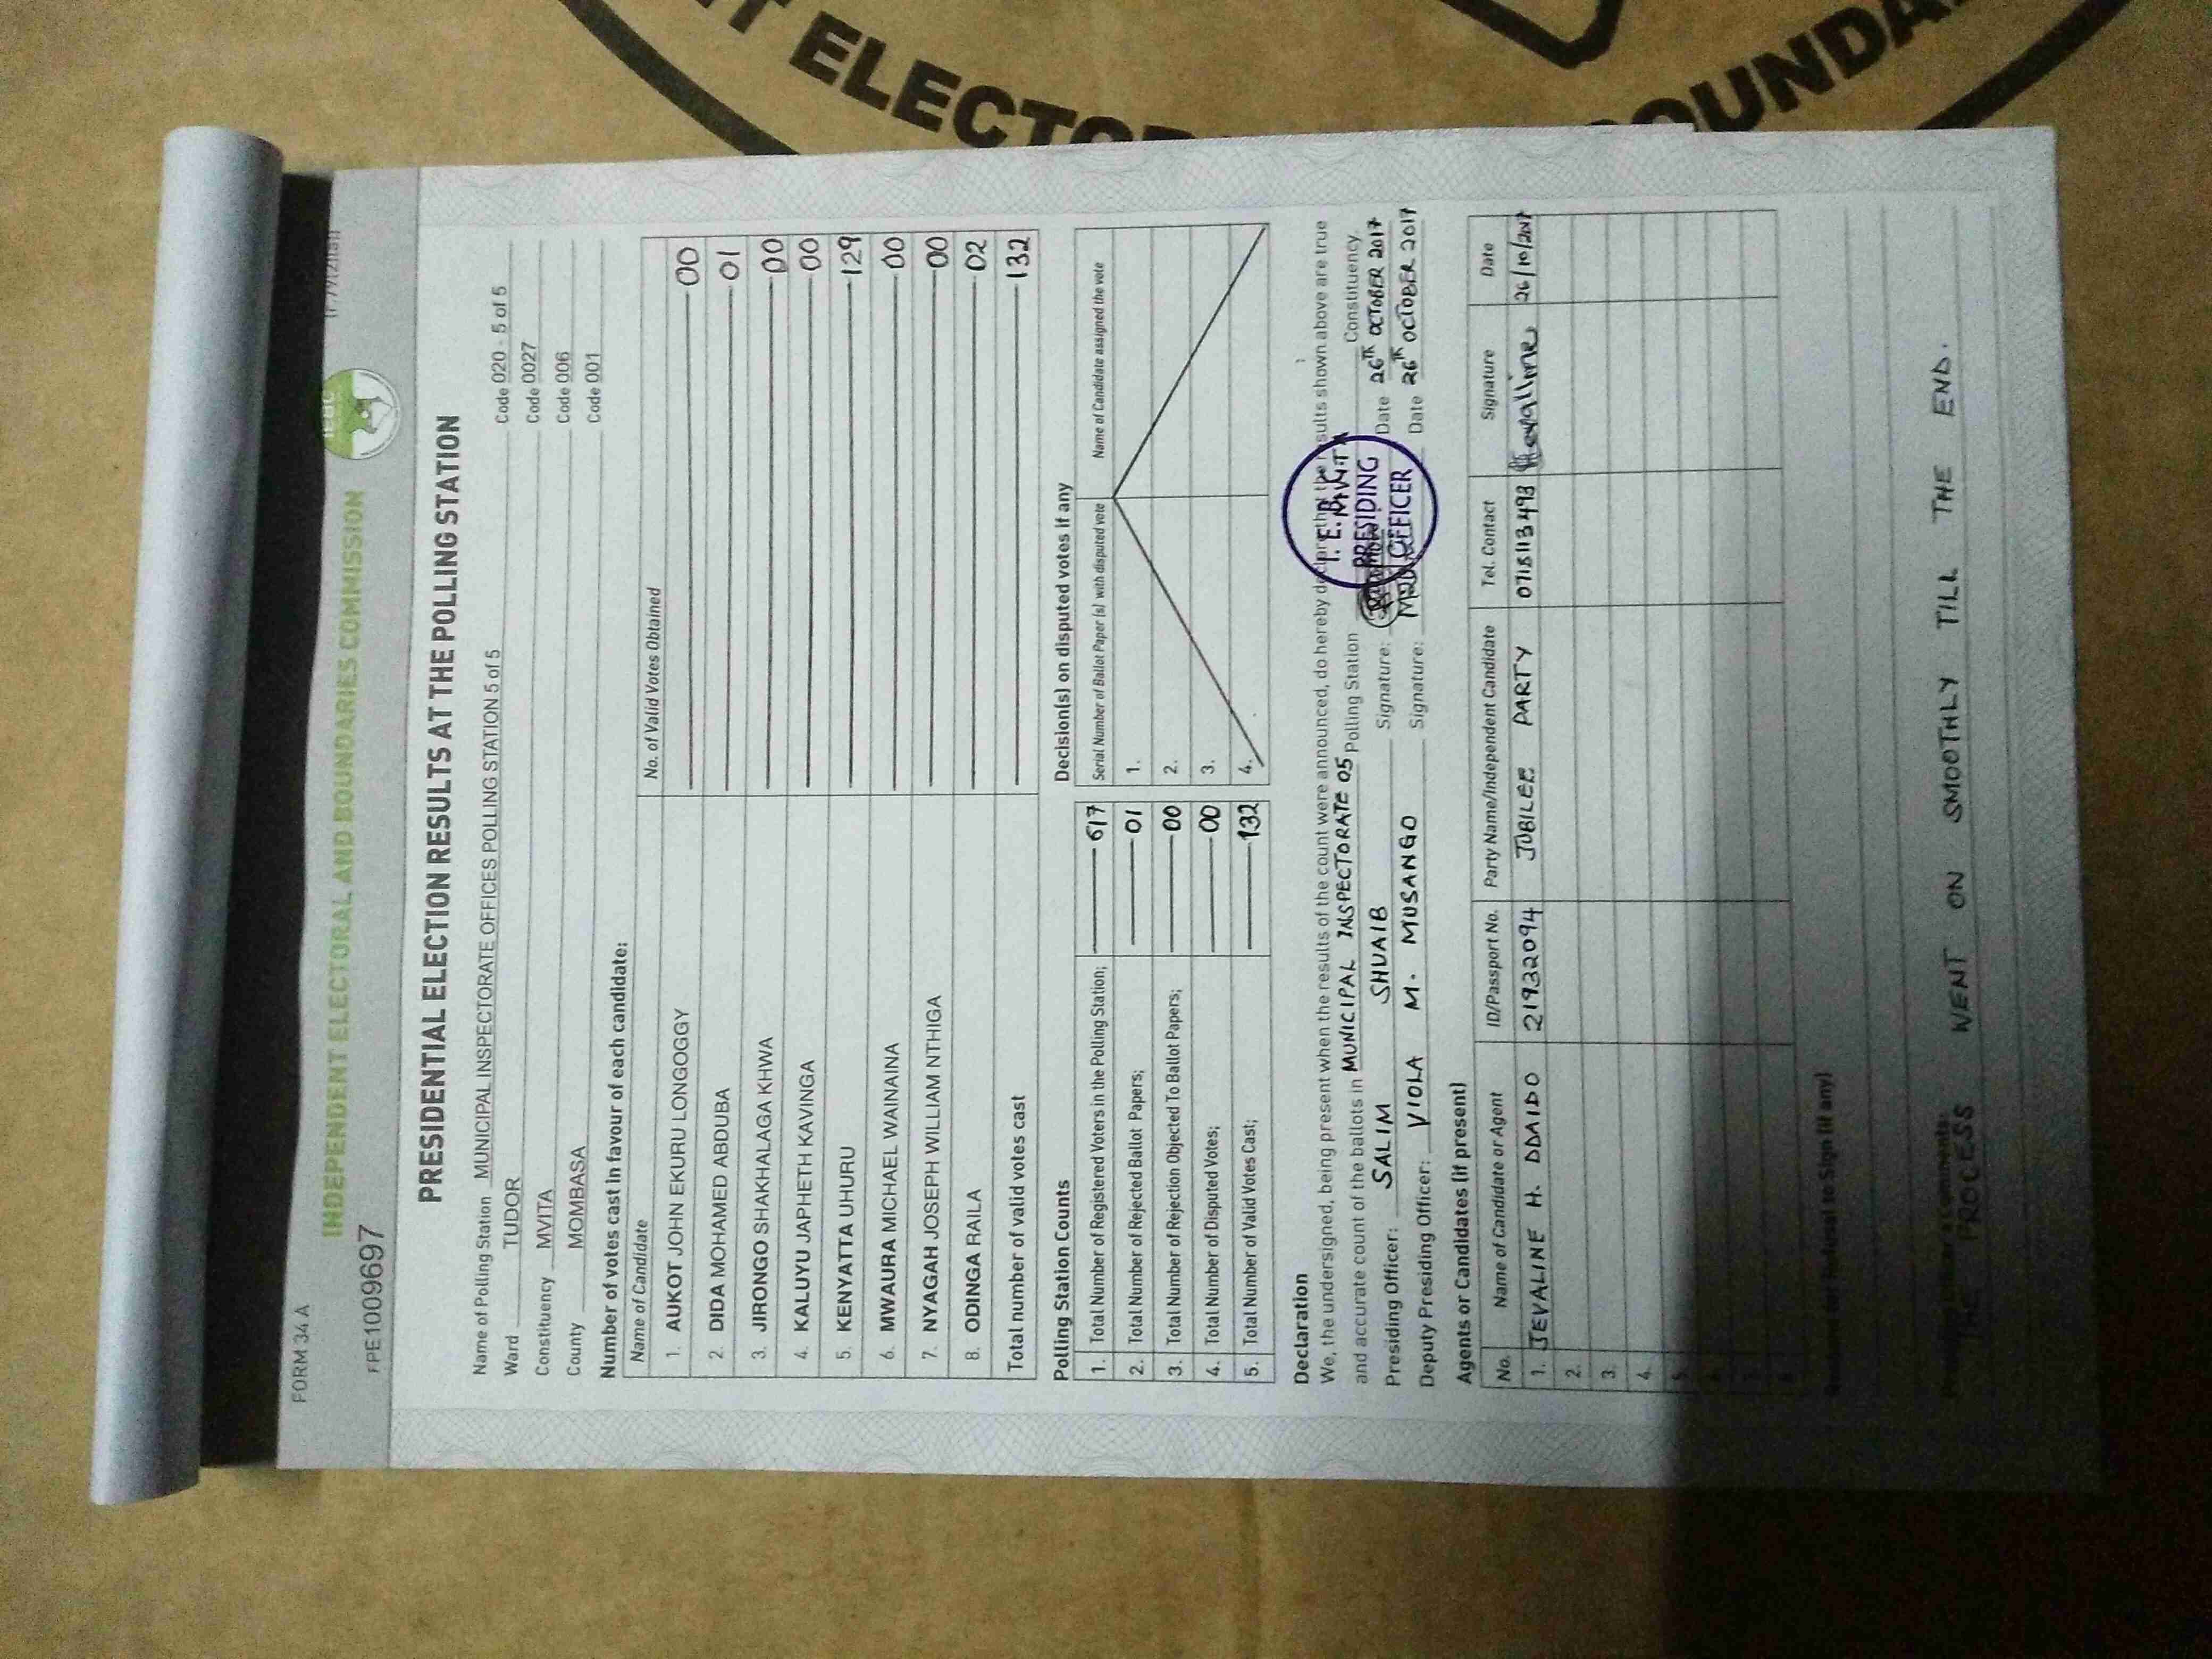 FORM 34 A
INDEPENDENT ELECTORAL AND BOUNDARIES COMMISSION
FPE1009697
PRESIDENTIAL ELECTION RESULTS AT THE POLLING STATION
Name of Polling Station MUNICIPAL INSPECTORATE OFFICES POLLING STATION 5 of 5 Code 020 - 5 of 5
Ward TUDOR Code 0027
Constituency MVITA Code 006
County MOMBASA Code 001
Number of votes cast in favour of each candidate:
Name of Candidate No. of Valid Votes Obtained
1. AUKOT JOHN EKURU LONGOGGY 00
2. DIDA MOHAMED ABDUBA 01
3. JIRONGO SHAKHALAGA KHWA 00
4. KALUYU JAPHETH KAVINGA 00
5. KENYATTA UHURU 129
6. MWAURA MICHAEL WAINAINA 00
7. NYAGAH JOSEPH WILLIAM NTHIGA 00
8. ODINGA RAILA 02
Total number of valid votes cast 132
Polling Station Counts
1. Total Number of Registered Voters in the Polling Station; 617
2. Total Number of Rejected Ballot Papers; 01
3. Total Number of Rejection Objected To Ballot Papers; 00
4. Total Number of Disputed Votes; 00
5. Total Number of Valid Votes Cast; 132
Decision(s) on disputed votes if any
Serial Number of Ballot Paper (s) with disputed vote Name of Candidate assigned the vote
1.
2.
3.
4.
Declaration
We, the undersigned, being present when the results of the count were announced, do hereby declare that the results shown above are true
and accurate count of the ballots in MUNICIPAL INSPECTORATE 05 Polling Station MVITA Constituency.
Presiding Officer: SALIM SHUAIB Signature: Date 26TH OCTOBER 2017
Deputy Presiding Officer: VIOLA M. MUSANGO Signature: Date 26TH OCTOBER 2017
I. E. B. C
PRESIDING
OFFICER
Agents or Candidates (if present)
No. Name of Candidate or Agent ID/Passport No. Party Name/Independent Candidate Tel. Contact Signature Date
1. JEVALINE H. DDAIDO 21932094 JUBILEE PARTY 0718113493 26/10/2017
2.
3.
4.
5.
Reasons for Refusal to Sign (if any)
PROCESS WENT ON SMOOTHLY TILL THE END.
ELECTORAL
BOUNDA